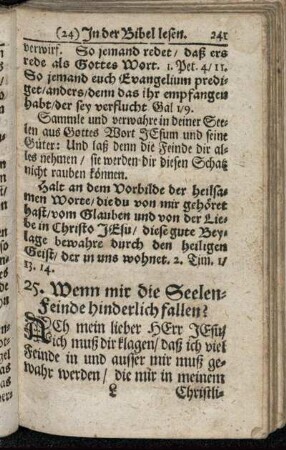 (24) In der Bibel lesen. 241
verwirf. So jemand redet/ daß ers
rede als Gottes Wort. 1. Pet. 4/11.
So jemand euch Evangelium predi-
get/anders/denn das ihr empfangen
habt/der sey verflucht Gal 1/9.
Sammle und verwahre in deiner See-
len aus Gottes Wort JEsum und seine
Güter: Und laß denn die Feinde dir al-
les nehmen/ sie werden dir diesen Schatz
nicht rauben können.
Halt an dem Vorbilde der heilsa-
men Worte/die du von mir gehöret
hast/vom Glauben und von der Lie-
be in Christo JEsu/ diese gute Bey-
lage bewahre durch den heiligen
Geist/ der in uns wohnet. 2. Tim. 1/
13. 14.
25. Wenn mir die Seelen-
Feinde hinderlich fallen?
ACh mein lieber HErr JEsu/
ich muß dir klagen/ daß ich viel
Feinde in und ausser mir muß ge-
wahr werden/ die mir in meinem
L Christli-